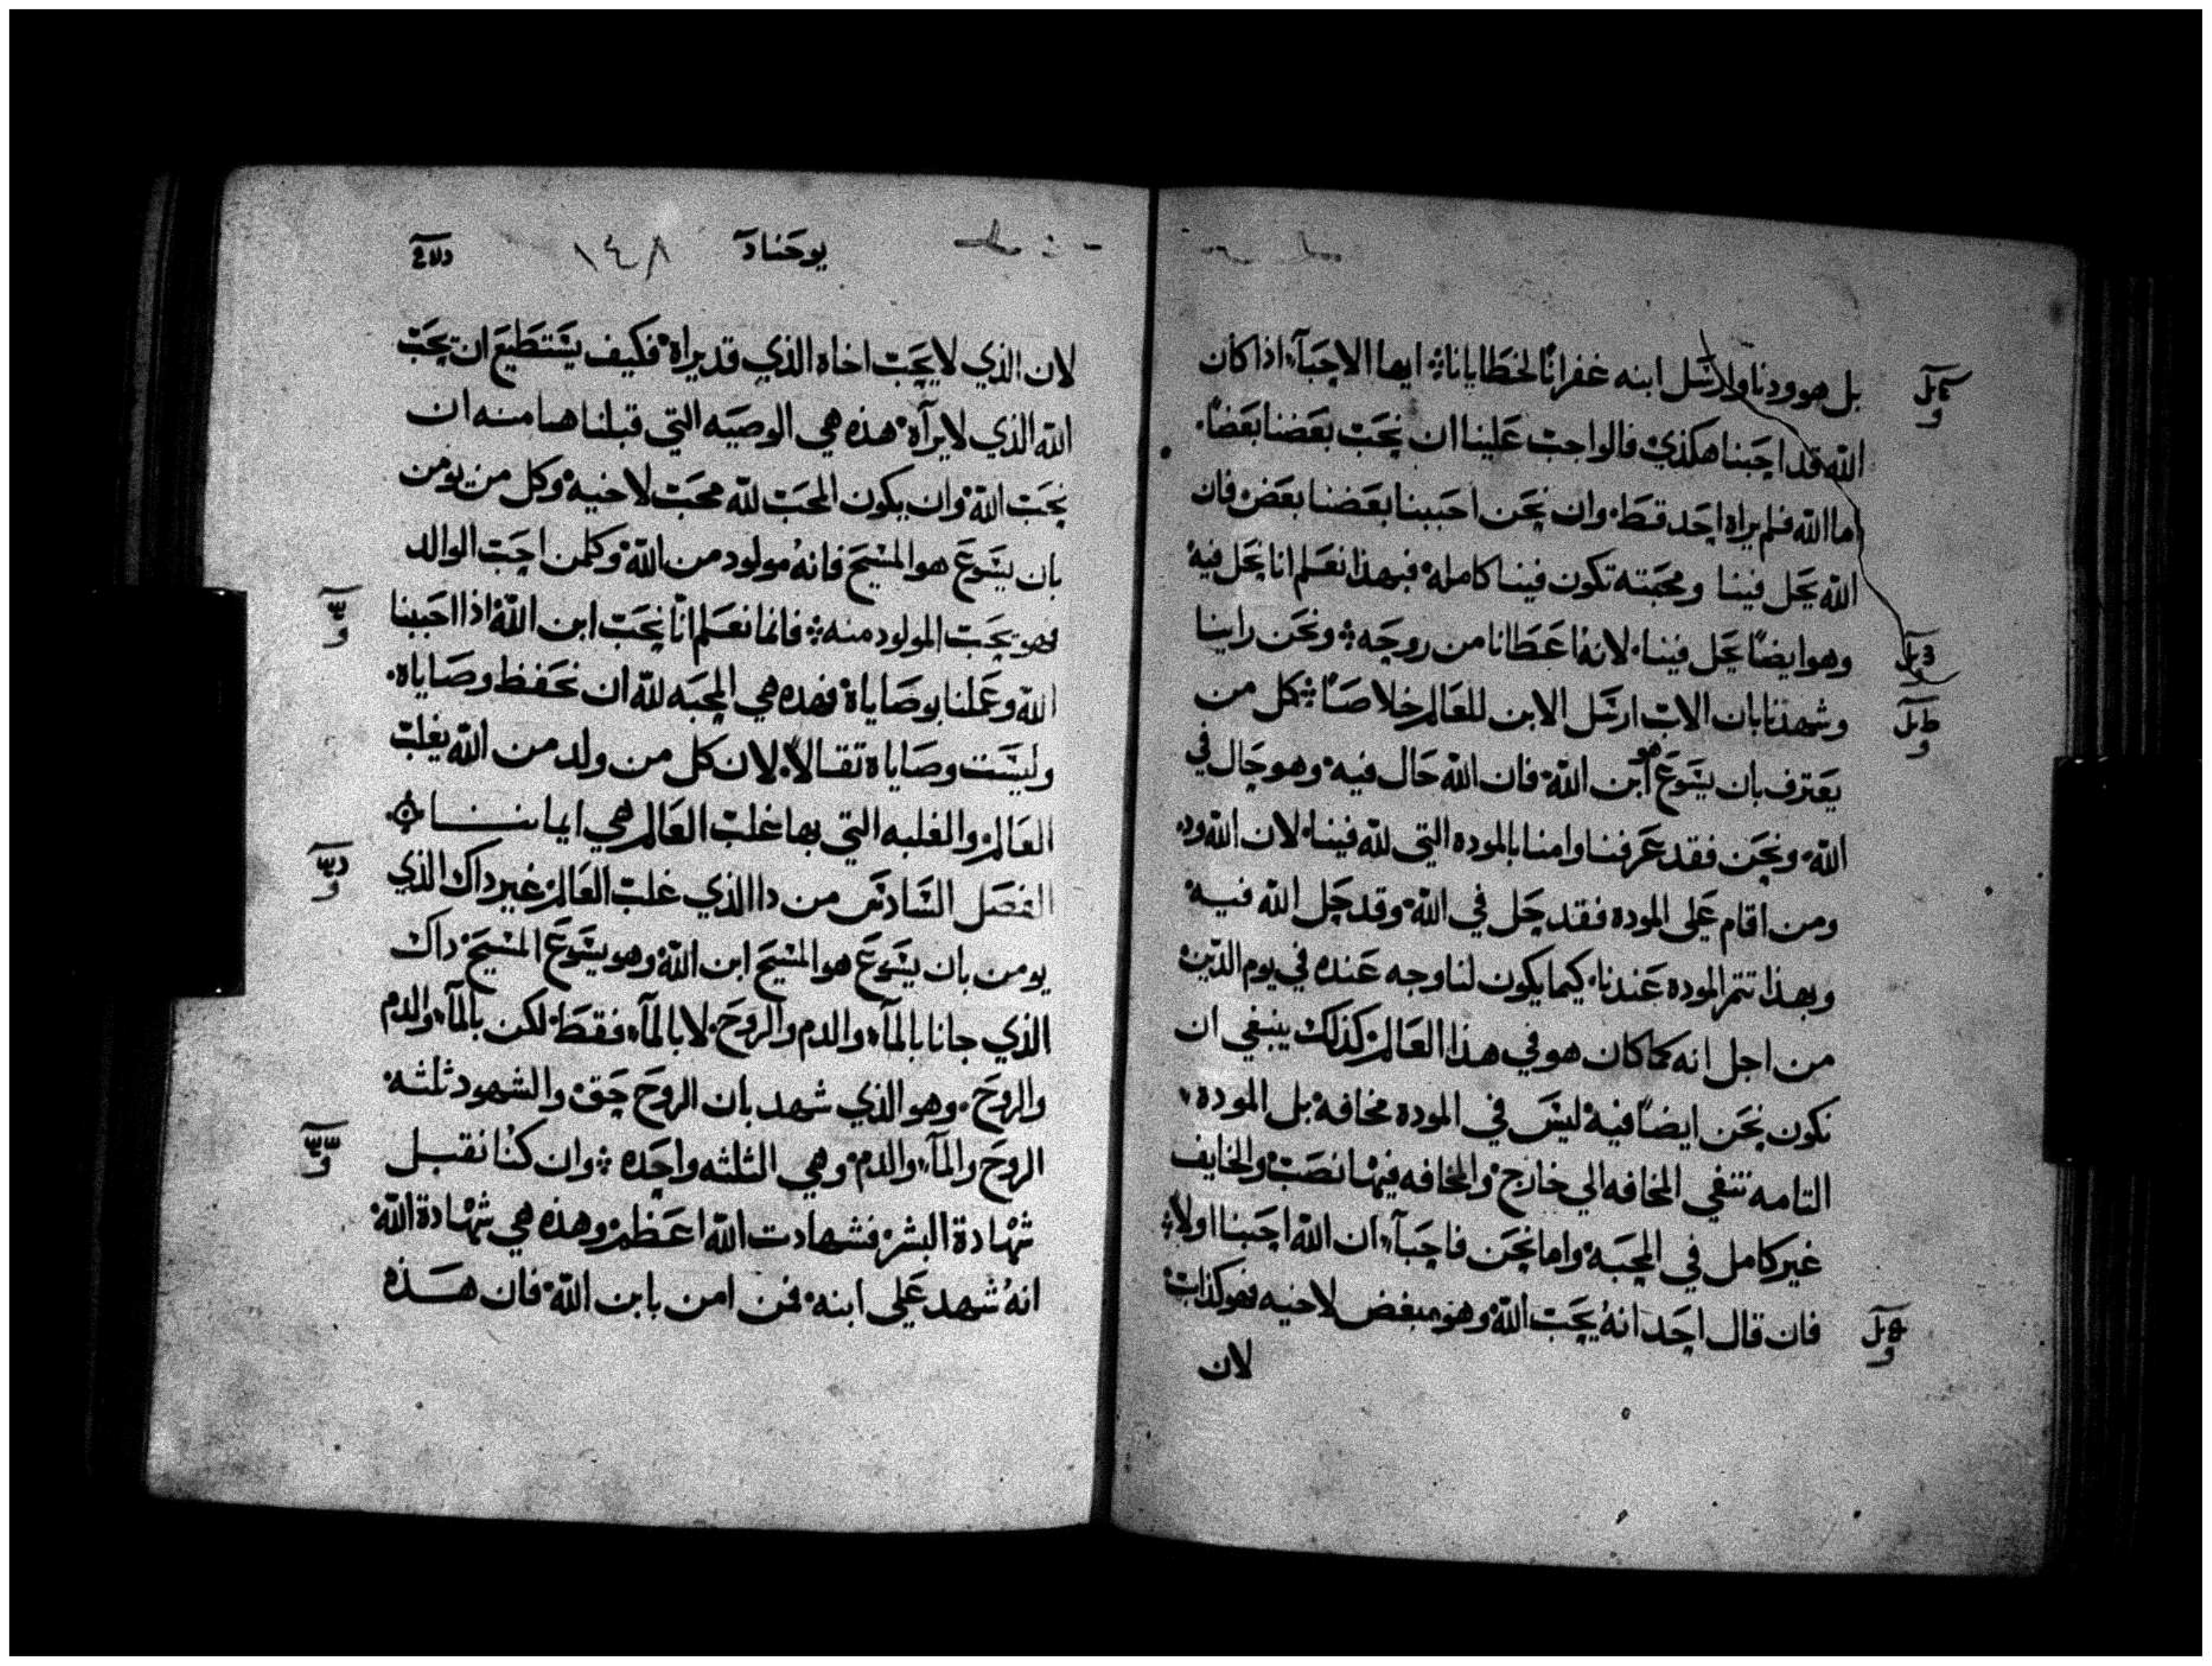 بل هو ودنا وارسل ابنه غفرانًا لخطايانا؛ ايها الاحبآء اذا كان
الله قد احبنا هكذي فالواجب علينا ان نحب بعضنا بعضًا.
اما الله فلم يراه احد قط، وان نحن احببنا بعضنا بعض فان
الله يحل فينا ومحبته تكون فينا كامله، فبهذا نعلم انا نحل فيه
وهو ايضًا يحل فينا، لانه اعطانا من روحه؛ ونحن راينا
وشهدنا بان الاب ارسل الابن للعالم خلاصًا؛ كل من
يعترف بان يسوع هو ابن الله، فان الله حال فيه، وهو حال في
الله، ونحن فقد عرفنا وامنا بالموده التي لله فينا، لان الله ود،
ومن اقام على الموده فقد حل في الله، وقد حل الله فيه
وبهذا تتم الموده عندنا، كيما يكون لنا وجه عنده في يوم الدين
من اجل انه كما كان هو في هذا العالم، كذلك ينبغي ان
نكون نحن ايضًا فيه، ليس في الموده مخافة، بل الموده
التامه تنفي المخافه الي خارج، والمخافه فيها نصب، والخايف
غير كامل في المحبه، واما نحن فاحبآء، ان الله احبنا اولا؛
فان قال احد انه يحب الله وهو مبغض لاخيه فهو كذاب
لان
يوحنا د ١٤٨
لان الذي لا يحب اخاه الذي قد يراه، فكيف يستطيع ان يحب
الله الذي لا يرآه، هذه هي الوصيه التي قبلناها منه ان
نحب الله، وان يكون المحب لله محب لاخيه، وكل من يومن
بان يسوع هو المسيح فانه مولود من الله، وكلمن احب الوالد
فهو يحب المولود منه؛ فانما نعلم انا نحب ابن الله، اذا احببنا
الله وعملنا بوصاياه، فهده هي المحبه لله ان نحفظ وصاياه.
وليست وصاياه ثقالا، لان كل من ولد من الله يغلب
العالم، والغلبه التي بها غلب العالم هي ايماننا
الفصل السادس من دا الذي غلب العالم، غير داك الذي
يومن بان يسوع هو المسيح ابن الله، وهو يسوع المسيح، داك
الذي جانا بالمآء، والدم والروح، لا بالمآء، فقط، لكن بالمآء، والدم
والروح. وهو الذي شهد بان الروح حق، والشهود ثلثه
الروح والمآء، والدم، وهي الثلثه واحده؛ وان كنا نقبل
شهادة البشر، فشهادت الله اعظم، وهذه هي شهادة الله
انه شهد على ابنه، فمن امن بابن الله، فان هذه